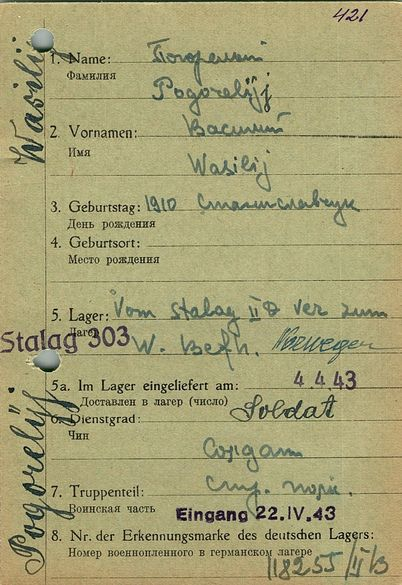 421
1. Name: Погорелый
Фамилия
Pogorelÿj
2. Vornamen: Василий
Имя
Wasilij
3. Geburtstag: 1910
День рождения
4. Geburtsort:
Место рождения
5. Lager: Vom Stalag II B ver zum
Лагерь
Stalag 303
W. Befh. Norwegen
5a. Im Lager eingeliefert am: 4.4.43
Доставлен в лагерь (число)
6. Dienstgrad: Soldat
Чин
Солдат
7. Truppenteil:
Воинская часть
Eingang 22.IV.43
8. Nr. der Erkennungsmarke des deutschen Lagers:
Номер военнопленного в германском лагере
Wasilij
Pogorelÿj